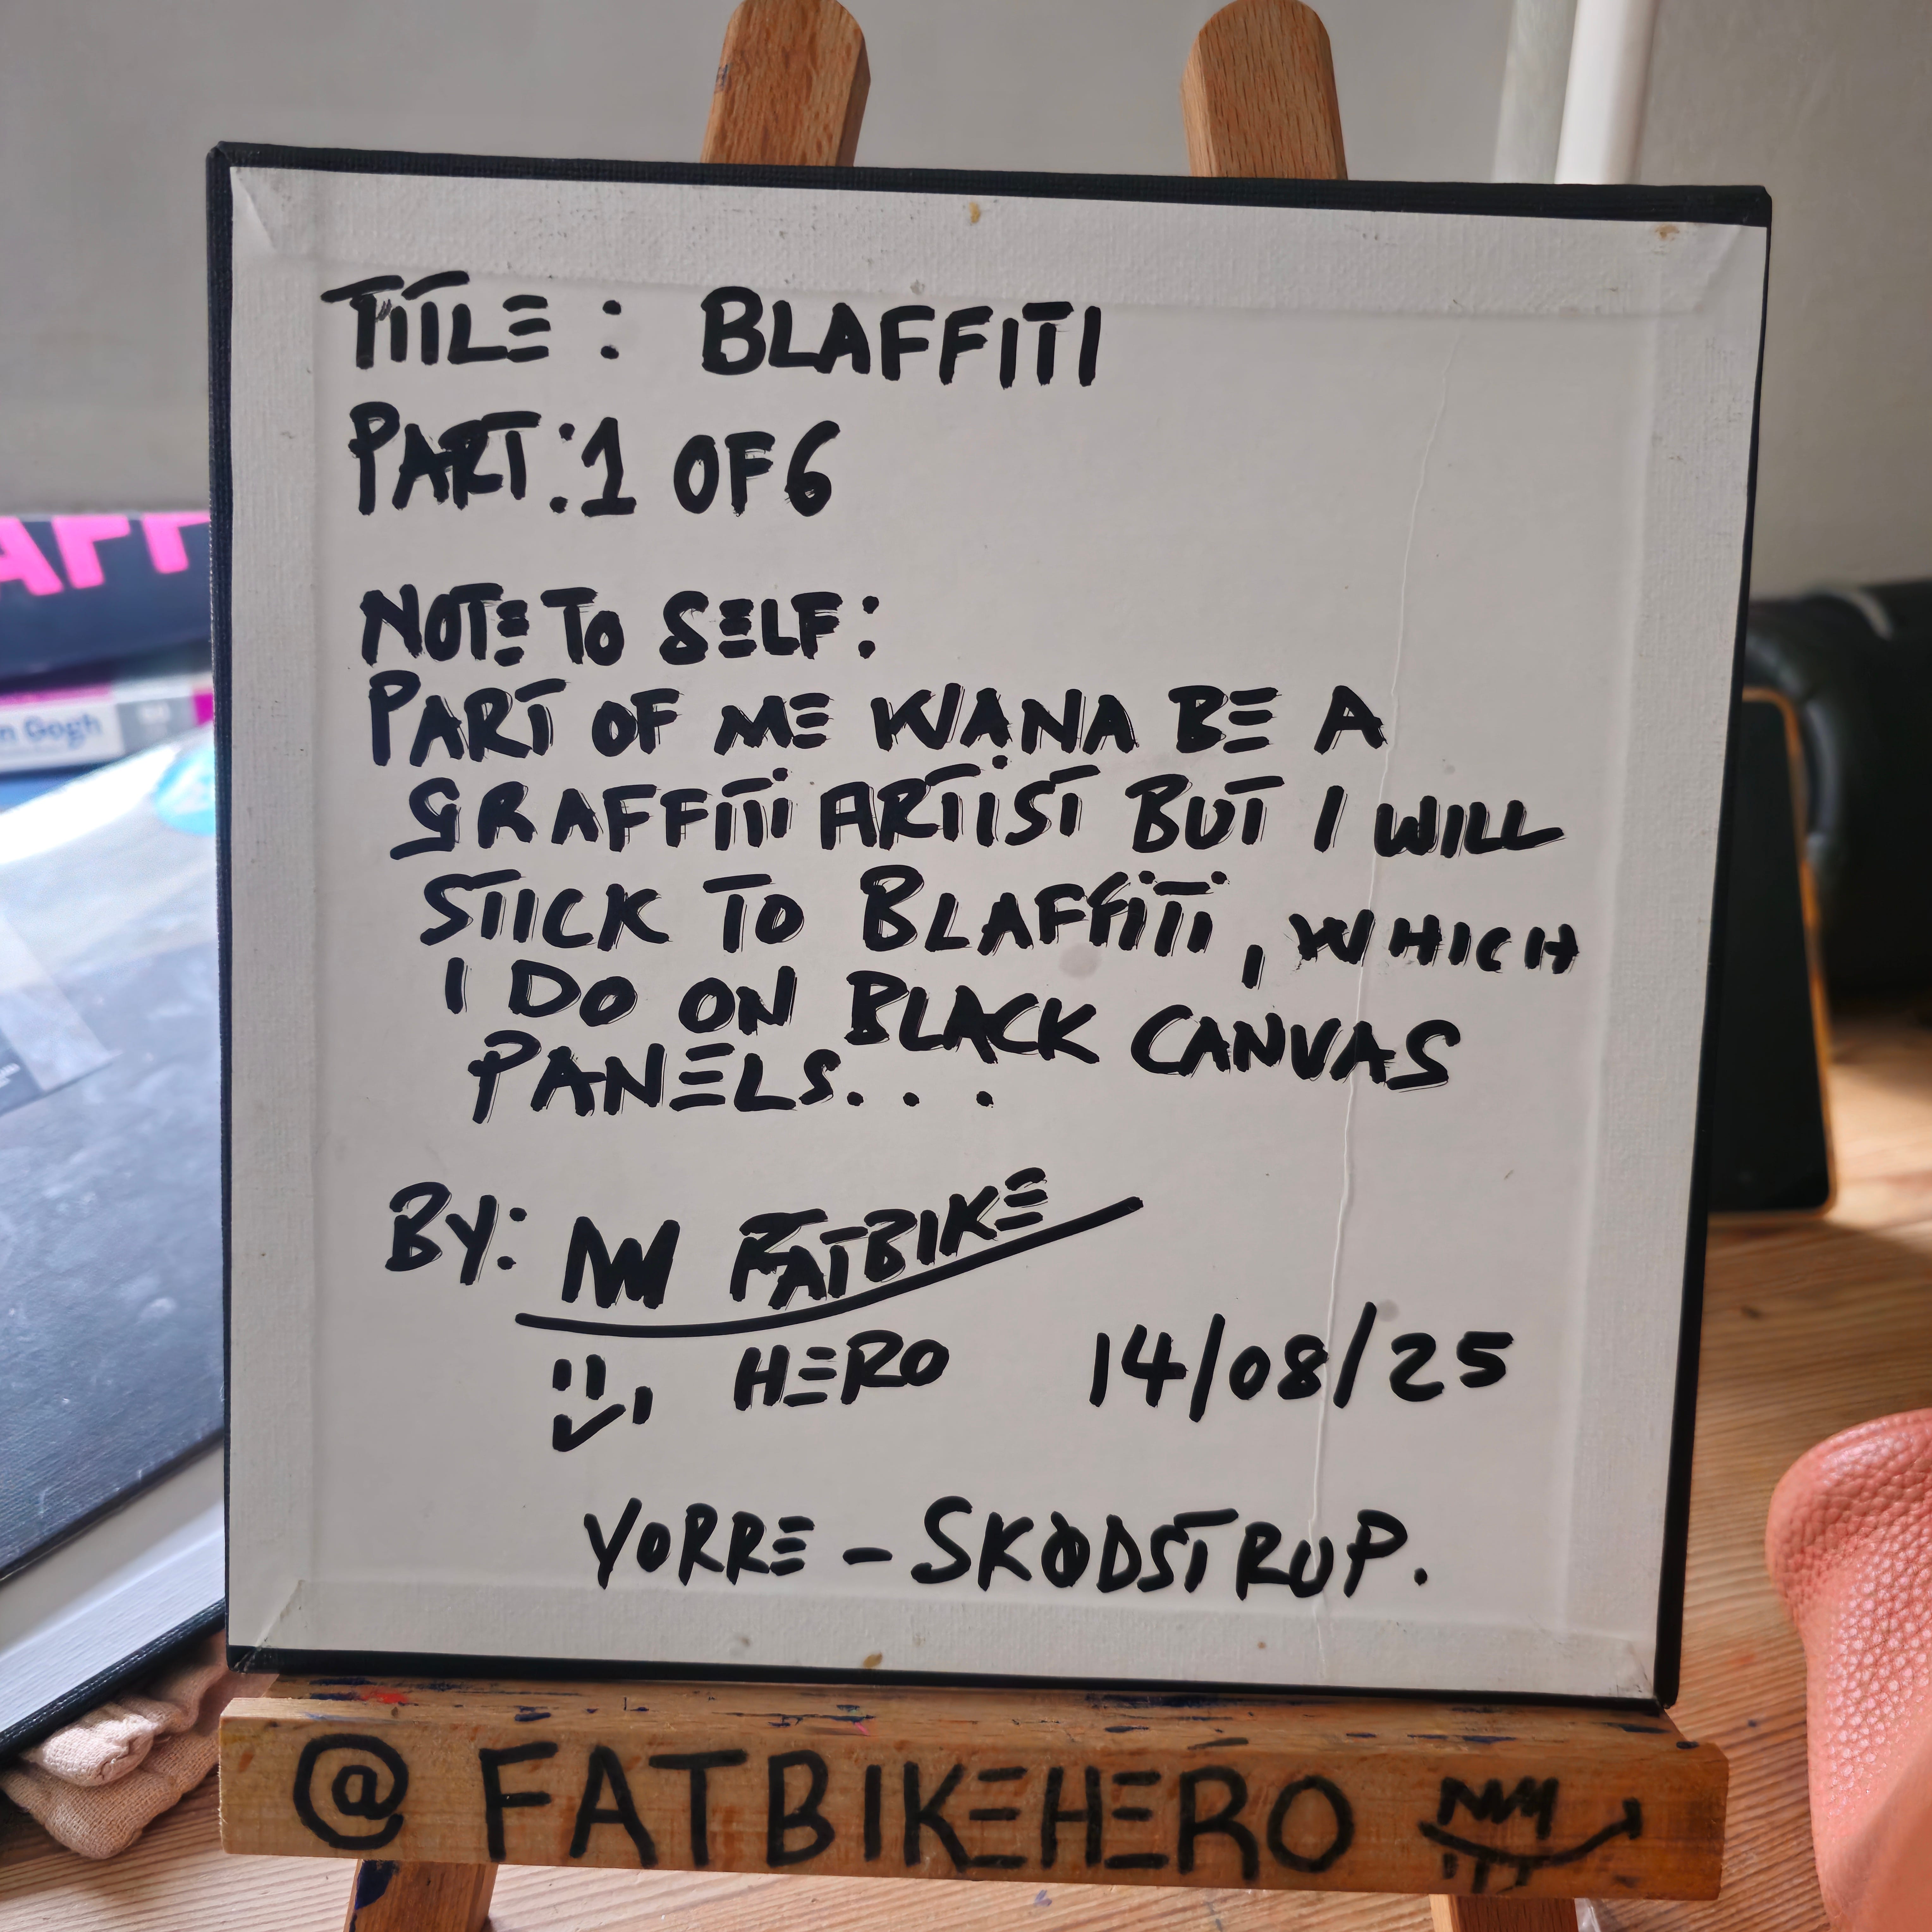 TITLE: BLAFFITI
PART: 1 OF 6
NOTE TO SELF:
PART OF ME WANA BE A
GRAFFITI ARTIST BUT I WILL
STICK TO BLAFFITI, WHICH
I DO ON BLACK CANVAS
PANELS...
BY: NM FATBIKE
HERO 14/08/25
VORRE - SKØDSTRUP.
@FATBIKEHERO NM
AFF
n Gogh